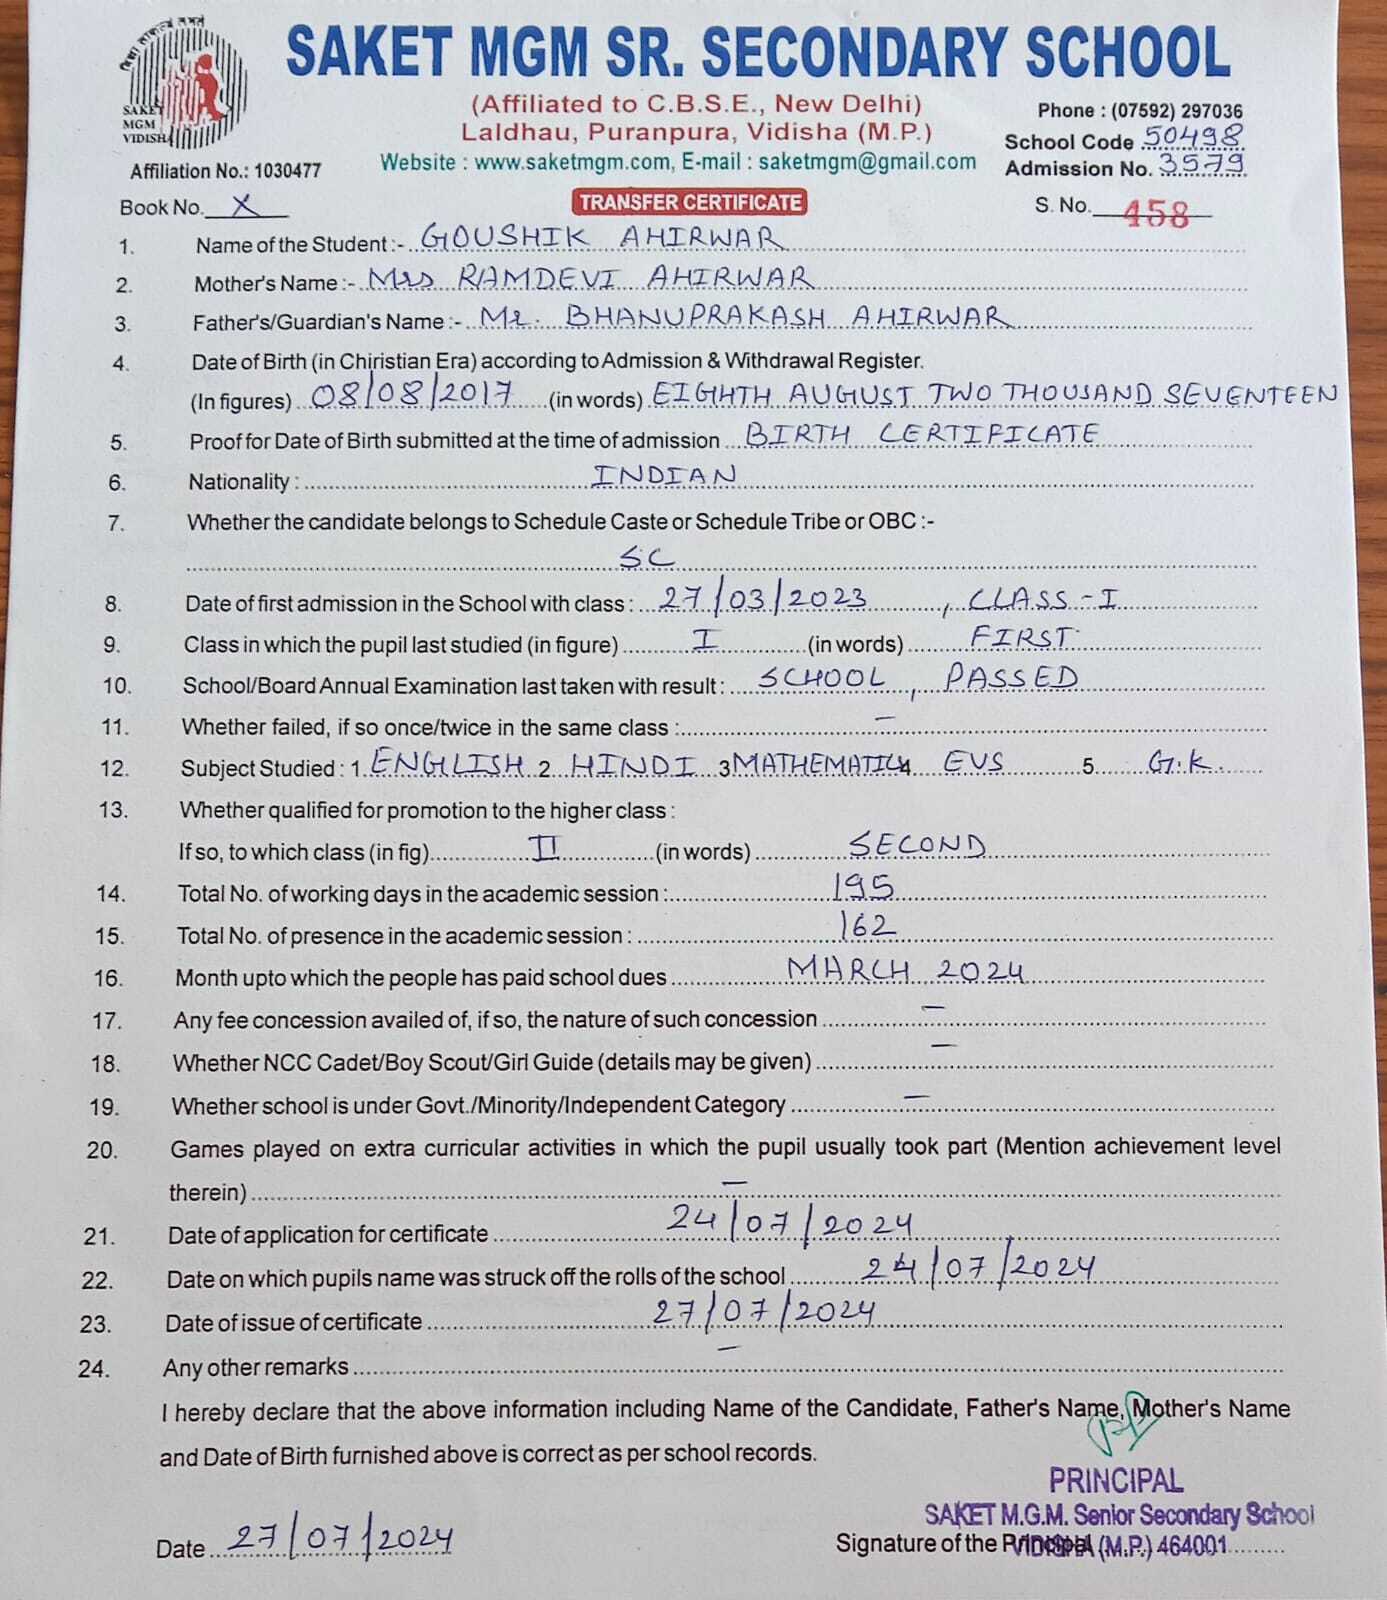 SAKET MGM SR. SECONDARY SCHOOL
(Affiliated to C.B.S.E., New Delhi)
Laldhau, Puranpura, Vidisha (M.P.)
Website : www.saketmgm.com, E-mail : saketmgm@gmail.com
SAKET
MGM
VIDISHA
Affiliation No.: 1030477
Phone : (07592) 297036
School Code 50498
Admission No. 3579
Book No. X
TRANSFER CERTIFICATE
S. No. 458
1. Name of the Student :- GOUSHIK AHIRWAR
2. Mother's Name :- Mrs RAMDEVI AHIRWAR
3. Father's/Guardian's Name :- Mr. BHANUPRAKASH AHIRWAR
4. Date of Birth (in Chiristian Era) according to Admission & Withdrawal Register.
(In figures) 08/08/2017 (in words) EIGHTH AUGUST TWO THOUSAND SEVENTEEN
5. Proof for Date of Birth submitted at the time of admission BIRTH CERTIFICATE
6. Nationality : INDIAN
7. Whether the candidate belongs to Schedule Caste or Schedule Tribe or OBC :-
SC
8. Date of first admission in the School with class : 27/03/2023, CLASS-I
9. Class in which the pupil last studied (in figure) I (in words) FIRST
10. School/Board Annual Examination last taken with result : SCHOOL, PASSED
11. Whether failed, if so once/twice in the same class : –
12. Subject Studied : 1. ENGLISH 2 HINDI 3 MATHEMATICS 4 EVS 5. G.K.
13. Whether qualified for promotion to the higher class :
If so, to which class (in fig) II (in words) SECOND
14. Total No. of working days in the academic session : 195
15. Total No. of presence in the academic session : 162
16. Month upto which the people has paid school dues MARCH 2024
17. Any fee concession availed of, if so, the nature of such concession –
18. Whether NCC Cadet/Boy Scout/Girl Guide (details may be given) –
19. Whether school is under Govt./Minority/Independent Category –
20. Games played on extra curricular activities in which the pupil usually took part (Mention achievement level
therein) –
21. Date of application for certificate 24/07/2024
22. Date on which pupils name was struck off the rolls of the school 24/07/2024
23. Date of issue of certificate 27/07/2024
24. Any other remarks –
I hereby declare that the above information including Name of the Candidate, Father's Name, Mother's Name
and Date of Birth furnished above is correct as per school records.
PRINCIPAL
SAKET M.G.M. Senior Secondary School
VIDISHA (M.P.) 464001
Date 27/07/2024
Signature of the Principal